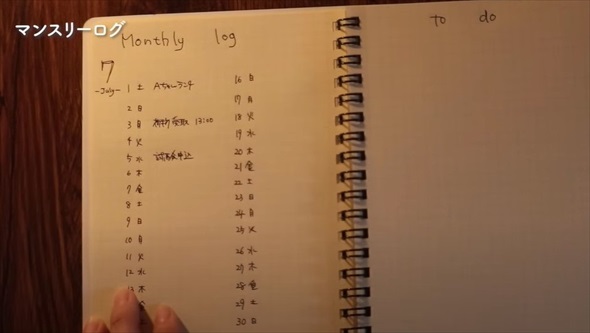 マンスリーログ
Monthly log
7
-July-
1 土 Aちゃんランチ
2 日
3 月 受取 13:00
4 火
5 水 試験申込
6 木
7 金
8 土
9 日
10 月
11 火
12 水
13 木
16 日
17 月
18 火
19 水
20 木
21 金
22 土
23 日
24 月
25 火
26 水
27 木
28 金
29 土
30 日
to do